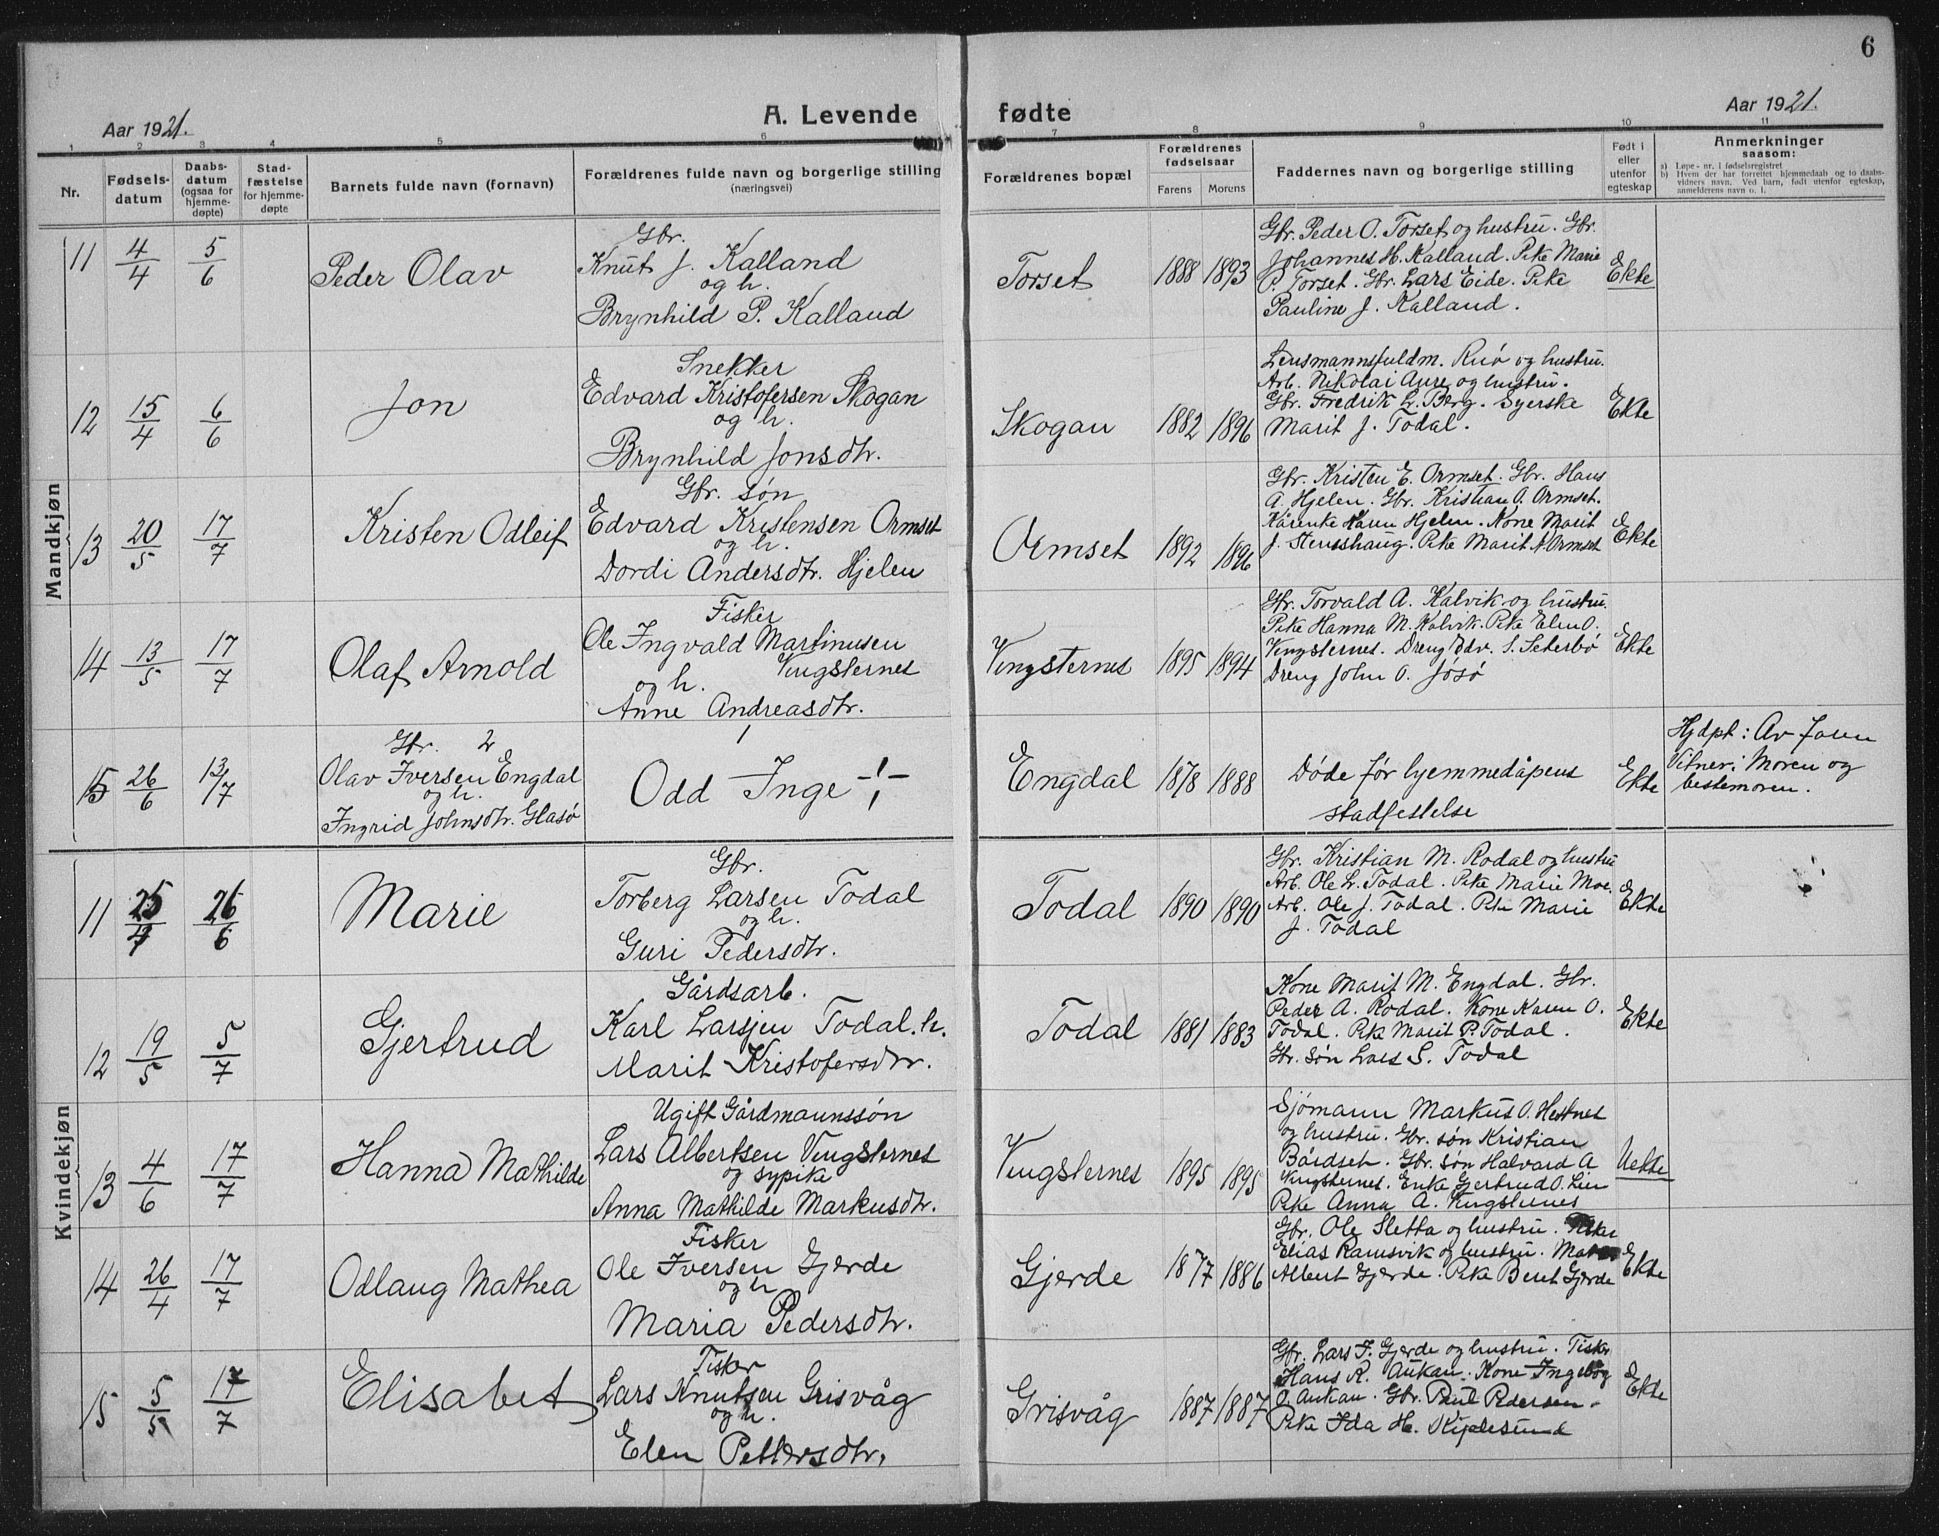 6
Aar 1921.
A. Levende fødte
Aar 1921.
1 2 3 4 5 6 7 8 9 10 11
Nr.
Fødsels-
datum
Daabs-
datum
(ogsaa for
hjemme-
døpte)
Stad-
fæstelse
for hjemme-
døpte
Barnets fulde navn (fornavn)
Forældrenes fulde navn og borgerlige stilling
(næringsvei)
Forældrenes bopæl
Forældrenes
fødselsaar
Farens Morens
Faddernes navn og borgerlige stilling
Født i
eller
utenfor
egteskap
Anmerkninger
saasom:
a) Løpe-nr. i fødselsregistret
b) Hvem der har forrettet hjemmedaab og to daabs-
vidners navn. Ved barn, født utenfor egteskap,
anmelderens navn o. l.
Mandkjøn
11 4/4 5/6 Peder Olav
Gbr.
Knut J. Kalland
og h.
Brynhild P. Kalland
Torset 1888 1893
Gbr. Peder O. Torset og hustru. Gbr.
Johannes H. Kalland. Pike Marie
P. Torset. Gbr. Lars Eide. Pike
Pauline J. Kalland.
Ekte
12 15/4 6/6 Jon
Snekker
Edvard Kristofersen Skogan
og h.
Brynhild Jonsdtr.
Skogan 1882 1896
Lensmannsfuldm. Ruø og hustru.
Arb. Nikolai Aure og hustru.
Gbr. Fredrik L. Berg. Syerske
Marit J. Todal.
Ekte
13 20/5 17/7 Kristen Odleif
Gbr. søn
Edvard Kristensen Ormset
og h.
Dordi Andersdtr. Hjelen
Ormset 1892 1896
Gbr. Kristen E. Ormset. Gbr. Hans
A. Hjelen. Gbr. Kristian O. Ormset.
Kårenke Karen Hjelen. Kone Marit
J. Stensshaug. Pike Marit A Ormset
Ekte
14 13/5 17/7 Olaf Arnold
Fisker
Ole Ingvald Martinusen
Vingsternes
og h.
Anne Andreasdtr.
Vingsternes 1895 1894
Gbr. Torvald A. Kalvik og hustru.
Pike Hanna M. Kalvik. Pike Elen O.
Vingsternes. Dreng Edv. S. Seterbø
Dreng John O. Jøsø
Ekte
15 26/6 13/7
Gbr. 2
Olav Iversen Engdal
og h.
Ingrid Johnsdtr. Glasø
1
Odd Inge
Engdal 1878 1888
Døde før hjemmedåpens
stadfestelse
Ekte
Hjdpt: Av faren
Vitner: Moren og
bestemoren.
Kvindekjøn
11 25/4 26/6 Marie
Gbr.
Torberg Larsen Todal
og h.
Guri Pedersdtr.
Todal 1890 1890
Gbr. Kristian M. Rodal og hustru
Arb. Ole L. Todal. Pike Marie Moe.
Arb. Ole J. Todal. Pike Marie
J. Todal
Ekte
12 19/5 5/7 Gjertrud
Gårdsarb.
Karl Larsjen Todal. h.
Marit Kristofersdtr.
Todal 1881 1883
Kone Marit M. Engdal. Gbr.
Peder A. Rodal. Kone Karen O.
Todal. Pike Marit P. Todal.
Gbr. søn Lars S. Todal
Ekte
13 4/6 17/7 Hanna Mathilde
Ugift Gårdmannssøn
Lars Albertsen Vingsternes
og sypike
Anna Mathilde Markusdtr.
Vingsternes 1895 1895
Sjømann Markus O. Hestnes
og hustru. Gbr. søn Kristian
Bårdset. Gbr. søn Halvard A
Vingsternes. Enke Gjertrud O. Lien
Pike Anna A. Vingsternes
Uekte
14 26/4 17/7 Odlaug Mathea
Fisker
Ole Iversen Gjerde
og h
Maria Pedersdtr.
Gjerde 1877 1886
Gbr. Ole Sletta og hustru. Fisker
Elias Ramsvik og hustru.
Albert Gjerde. Pike Berit Gjerde
Ekte
15 5/5 17/7 Elisabet
Fisker
Lars Knutsen Grisvåg
og h.
Elen Pettersdtr.
Grisvåg 1887 1887
Gbr. Lars I. Gjerde og hustru. Fisker
Hans R. Aukan. Kone Ingeborg
O. Aukan. Gbr. Paul Pedersen.
Pike Ida H. Kiplesund
Ekte